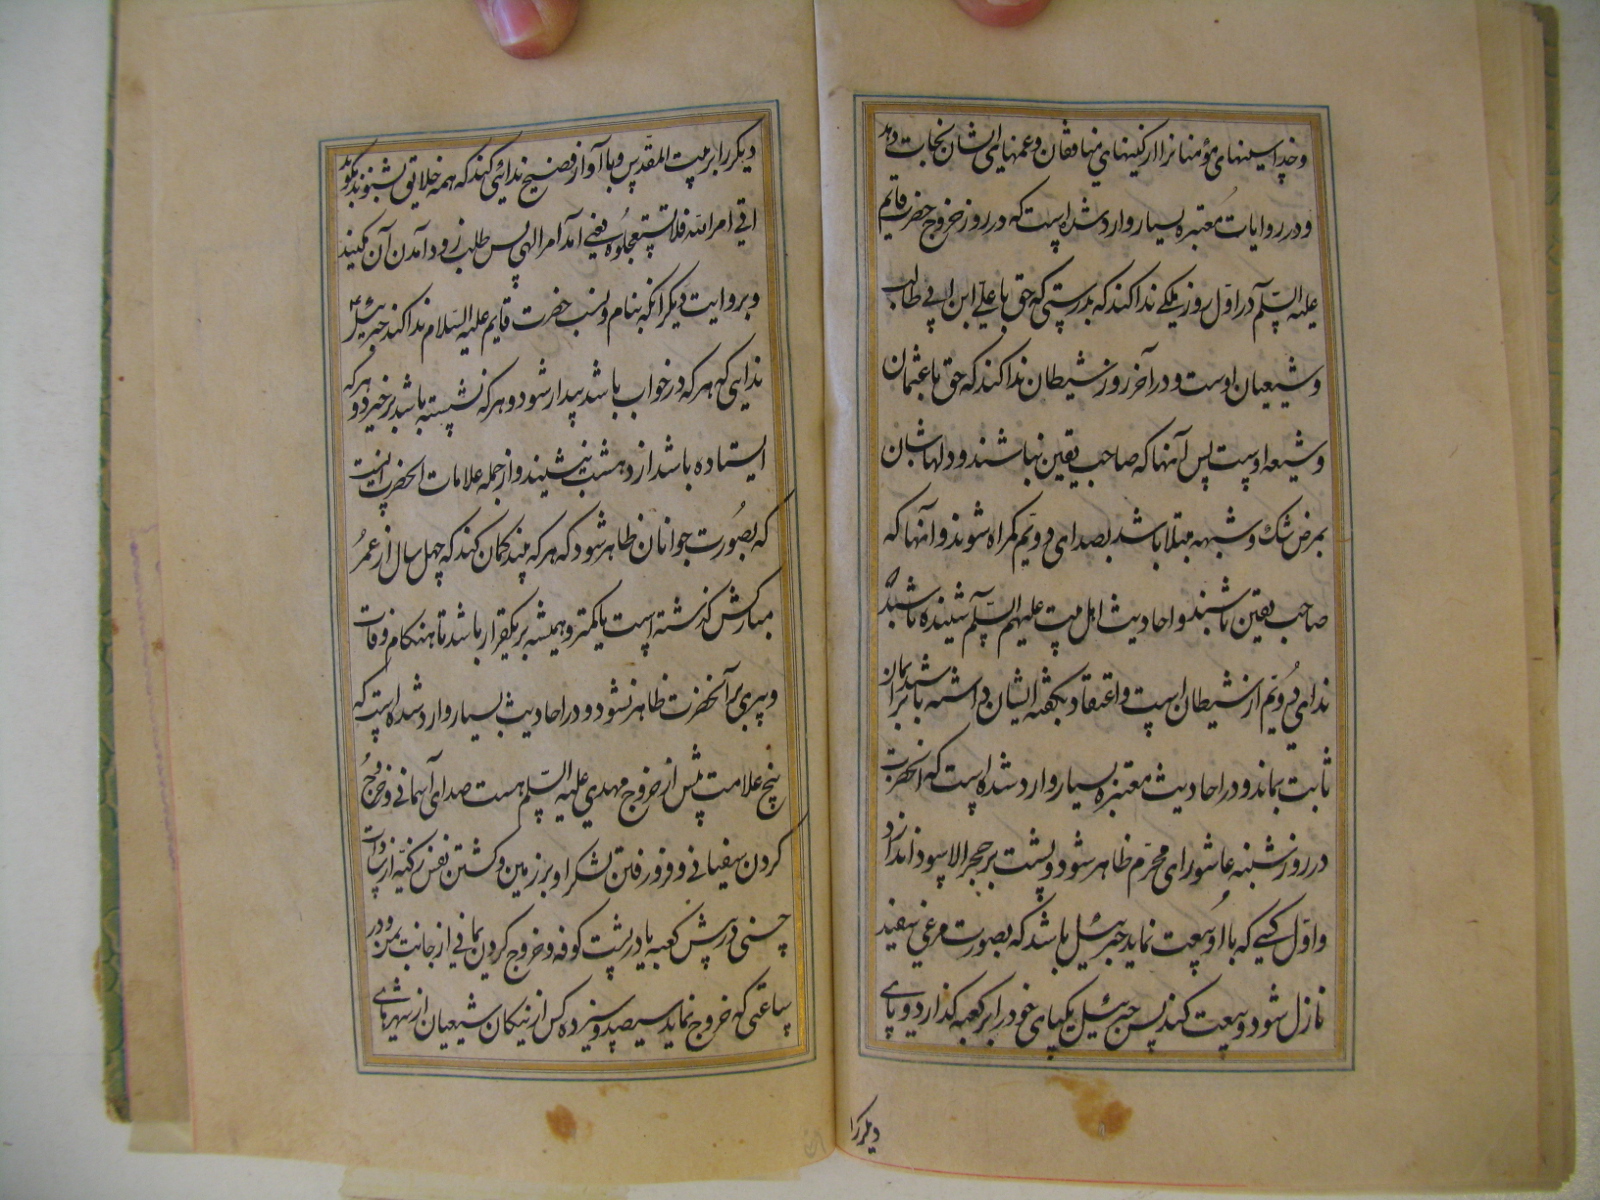 و خدا سینهای مؤمنانرا از کینهای منافقان و غمهای ایشان نجات دهد
و در روایات معتبره بسیار وارد شده است که در روز خروج حضرت قایم
علیه السّلم در اوّل روز ملکی ندا کند که بدرستی که حق با علی ابن ابی طالب
و شیعیان اوست و در آخر روز شیطان ندا کند که حق با عثمان
و شیعه اوست پس آنها که صاحب یقین نباشند و دلهاشان
بمرض شک و شبهه مبتلا باشد بصدای دویّم کمراه شوند و آنها که
صاحب یقین باشند و احادیث اهل بیت علیهم السّلم شنیده باشند
ندای دُویّم از شیطان است و اعتقاد بکفته ایشان داشته باشند بر ایمان
ثابت بماند و در احادیث معتبره بسیار وارد شده است که آنحضرت
در روز شنبه عاشورای محرّم ظاهر شود و پشت بر حجر الاسود اندازد
و اوّل کسی که با اُو بیعت نماید جبرئیل باشد که بصورت مرغی سفید
نازل شود و بیعت کند پس جبرئیل یکپای خود را بر کعبه کذارد و پای
دیکر را
دیکر را بر بیت المقدّس و با آواز فصیح ندائی کند که همه خلایق بشنوند بکوید
اتی امر الله فلا تستعجلوُه یعنی آمد امر الهی پس طلب زود آمدن آن مکنید
و بروایت دیکر آنکه بنام و نسب حضرت قایم علیه السّلام ندا کند جبرئیل
ندایی که هر که در خواب باشد بیدار شود و هر که نشسته باشد برخیزد و هر که
ایستاده باشد از دهشت بنشیند و از جمله علامات آنحضرت اینست
که بصُورت جوانان ظاهر شود که هر که بیند کمان کند که چهل سال از عمرُ
مبارکش کذشته است یا کمتر و همیشه بر یکقرار باشد تا هنکام وفات
و پیری بر آنحضرت ظاهر نشود و در احادیث بسیار وارد شده است که
پنج علامت پیش از خروج مهدی علیه السّلم هست صدای آسمانی و خروُج
کردن سفیانی و فرو رفتن لشکر او بر زمین و کشتن نفس زکیّه از سادات
حسنی در پیش کعبه یا در پشت کوفه و خروج کردن یمانی از جانب یمن و در
ساعتی که خروج نماید سیصد و سیزده کس از نیکان شیعیان از شهرهای